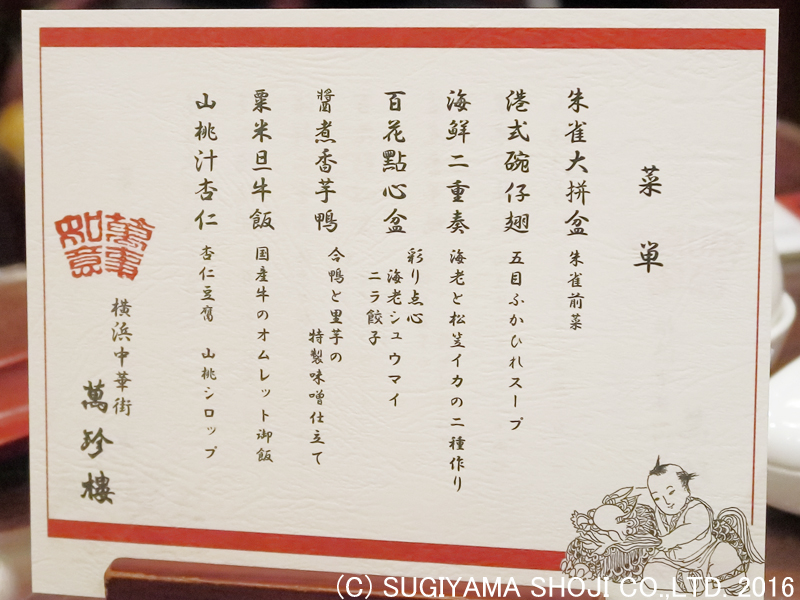 菜単
朱雀大拼盆 朱雀前菜
港式碗仔翅 五目ふかひれスープ
海鮮二重奏 海老と松笠イカの二種作り
百花點心盆 彩り点心
海老シュウマイ
ニラ餃子
醬煮香芋鴨 合鴨と里芋の
特製味噌仕立て
粟米旦牛飯 国産牛のオムレット御飯
山桃汁杏仁 杏仁豆腐 山桃シロップ
萬事如意
横浜中華街
萬珍樓
(C) SUGIYAMA SHOJI CO.,LTD. 2016